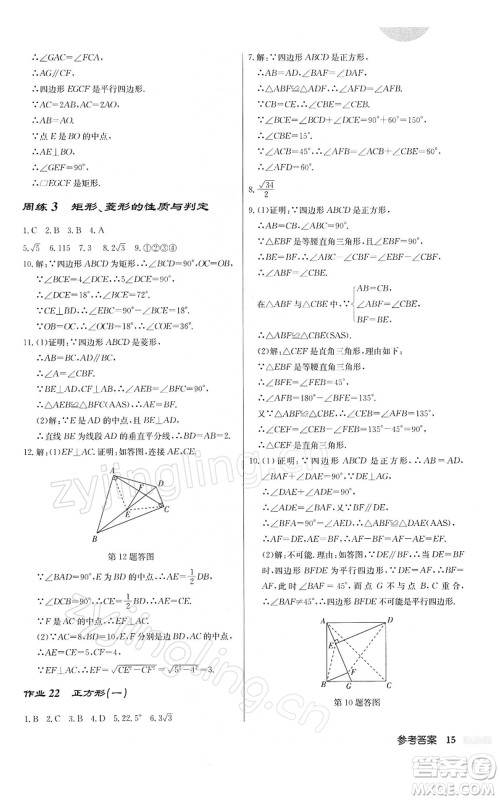 ∴∠GAC=∠FCA,
∴AG∥CF.
∴四边形 EGCF 是平行四边形.
∵AC=2AB,AC=2AO,
∴AB=AO.
∵点 E 是 BO 的中点,
∴AE⊥BO.
∴∠GEF=90°,
∴□EGCF 是矩形.
周练 3 矩形、菱形的性质与判定
1.C 2.B 3.B 4.A
5.√5 6.115 7.3 8.2√3 9.①②③④
10.解:∵四边形 ABCD 为矩形,∴∠DCB=90°.
∵∠BCE=4∠DCE,∴5∠DCE=90°.
∴∠DCE=18°.∴∠BCE=72°.
∵CE⊥BD,∴∠CBE=90°-∠BCE=18°.
∵OB=OC,∴∠OCB=18°.∴∠COE=36°.
11.(1)证明:∵四边形 ABCD 是菱形,
∴AB=BC,AD∥BC.
∴∠A=∠CBF.
∵BE⊥AD,CF⊥AB,∴∠AEB=∠BFC=90°.
∴△AEB≌△BFC(AAS).∴AE=BF.
(2)解:∵E 是 AD 的中点,且 BE⊥AD,
∴直线 BE 为线段 AD 的垂直平分线.
12.解:EF⊥AC.证明:如图,连接 AE,CE.
A
D
F
E
B
C
第 12 题答图
∵∠BAD=90°,E 为 BD 的中点,∴AE=1/2BD.
∵∠DCB=90°,∴CE=1/2BD.∴AE=CE.
∵F 是 AC 的中点,∴EF⊥AC.
∵AC=8,BD=10,E,F 分别是边 BD,AC 的中点,
∴EF⊥AC,∴EF=√(CE²-CF²)=√(5²-4²)=3.
作业 22 正方形(一)
1.B 2.B 3.D 4.D 5.22.5° 6.3√3
7.解:∵四边形 ABCD 是正方形,
∴AB=BC,∠ABC=90°,∠ACB=45°.
∵△ABF≌△CBE,∴∠ABF=∠CBE,BF=BE.
∵CB=CE,∴∠CBE=∠CEB.
∵∠BCE=∠BCD+∠DCE=90°+60°=150°,
∴∠CBE=15°.
∵∠ACB=45°,∴∠AFB=∠ACB+∠CBE=60°.
8.√34/2
9.(1)证明:∵四边形 ABCD 是正方形,
∴AB=CB,∠ABC=90°.
∵△EBF 是等腰直角三角形,∠EBF=90°,
∴BE=BF,∠ABC-∠CBF=∠EBF-∠CBF.
∴∠ABF=∠CBE.
AB=CB,
在△ABF 与△CBE 中,∵∠ABF=∠CBE,
BF=BE,
∴△ABF≌△CBE(SAS).
(2)解:△CEF 是直角三角形.理由如下:
∵△EBF 是等腰直角三角形,
∴∠BFE=∠FEB=45°.
∴∠AFB=180°-∠BFE=135°.
又∵△ABF≌△CBE,∴∠CEB=∠AFB=135°.
∴∠CEF=∠CEB-∠FEB=135°-45°=90°.
∴△CEF 是直角三角形.
10.(1)证明:∵四边形 ABCD 是正方形,
∴AD=AB,∠DAE+∠BAF=90°.
∵DE⊥AG,∴∠DAE+∠ADE=90°.
∴∠ADE=∠BAF.
∵BF∥DE,∴∠BFA=90°=∠AED.
∴△ABF≌△DAE(AAS).∴AF=DE.
(2)解:不可能.理由:如图,连接 BE,DF.若四边形 BFDE 是平行四边形,则 DE=BF.
∵△ABF≌△DAE,∴BF=AE.∴DE=AE.
∴∠DAE=45°.∴∠BAF=45°.
∵点 G 不与点 B 和点 C 重合,
∴∠BAF≠45°.∴四边形 BFDE 不可能是平行四边形.
A
D
E
F
B
G
C
第 10 题答图
参考答案 15